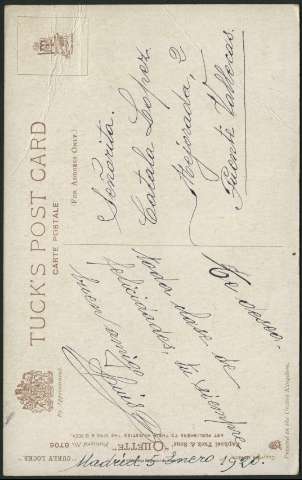 TUCK'S POST CARD
CARTE POSTALE
(FOR ADDRESS ONLY.)
By Appointment.
Señorita.
Catala Lopez
Mejorada, 2
Puente Vallecas.
toda clase de
felicidades, tu siempre
buen amigo
Luis
Madrid 5 Enero 1920.
Raphael Tuck & Sons'
"OILETTE"
Postcard No. 6706
ART PUBLISHERS TO THEIR MAJESTIES THE KING & QUEEN.
"CURLY LOCKS"
Printed in